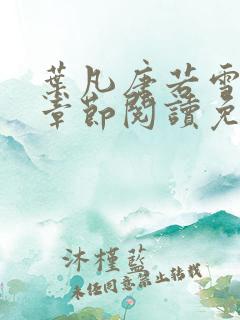 葉凡唐若雪
章節閱讀免
沐槿藍
未经同意禁止转载